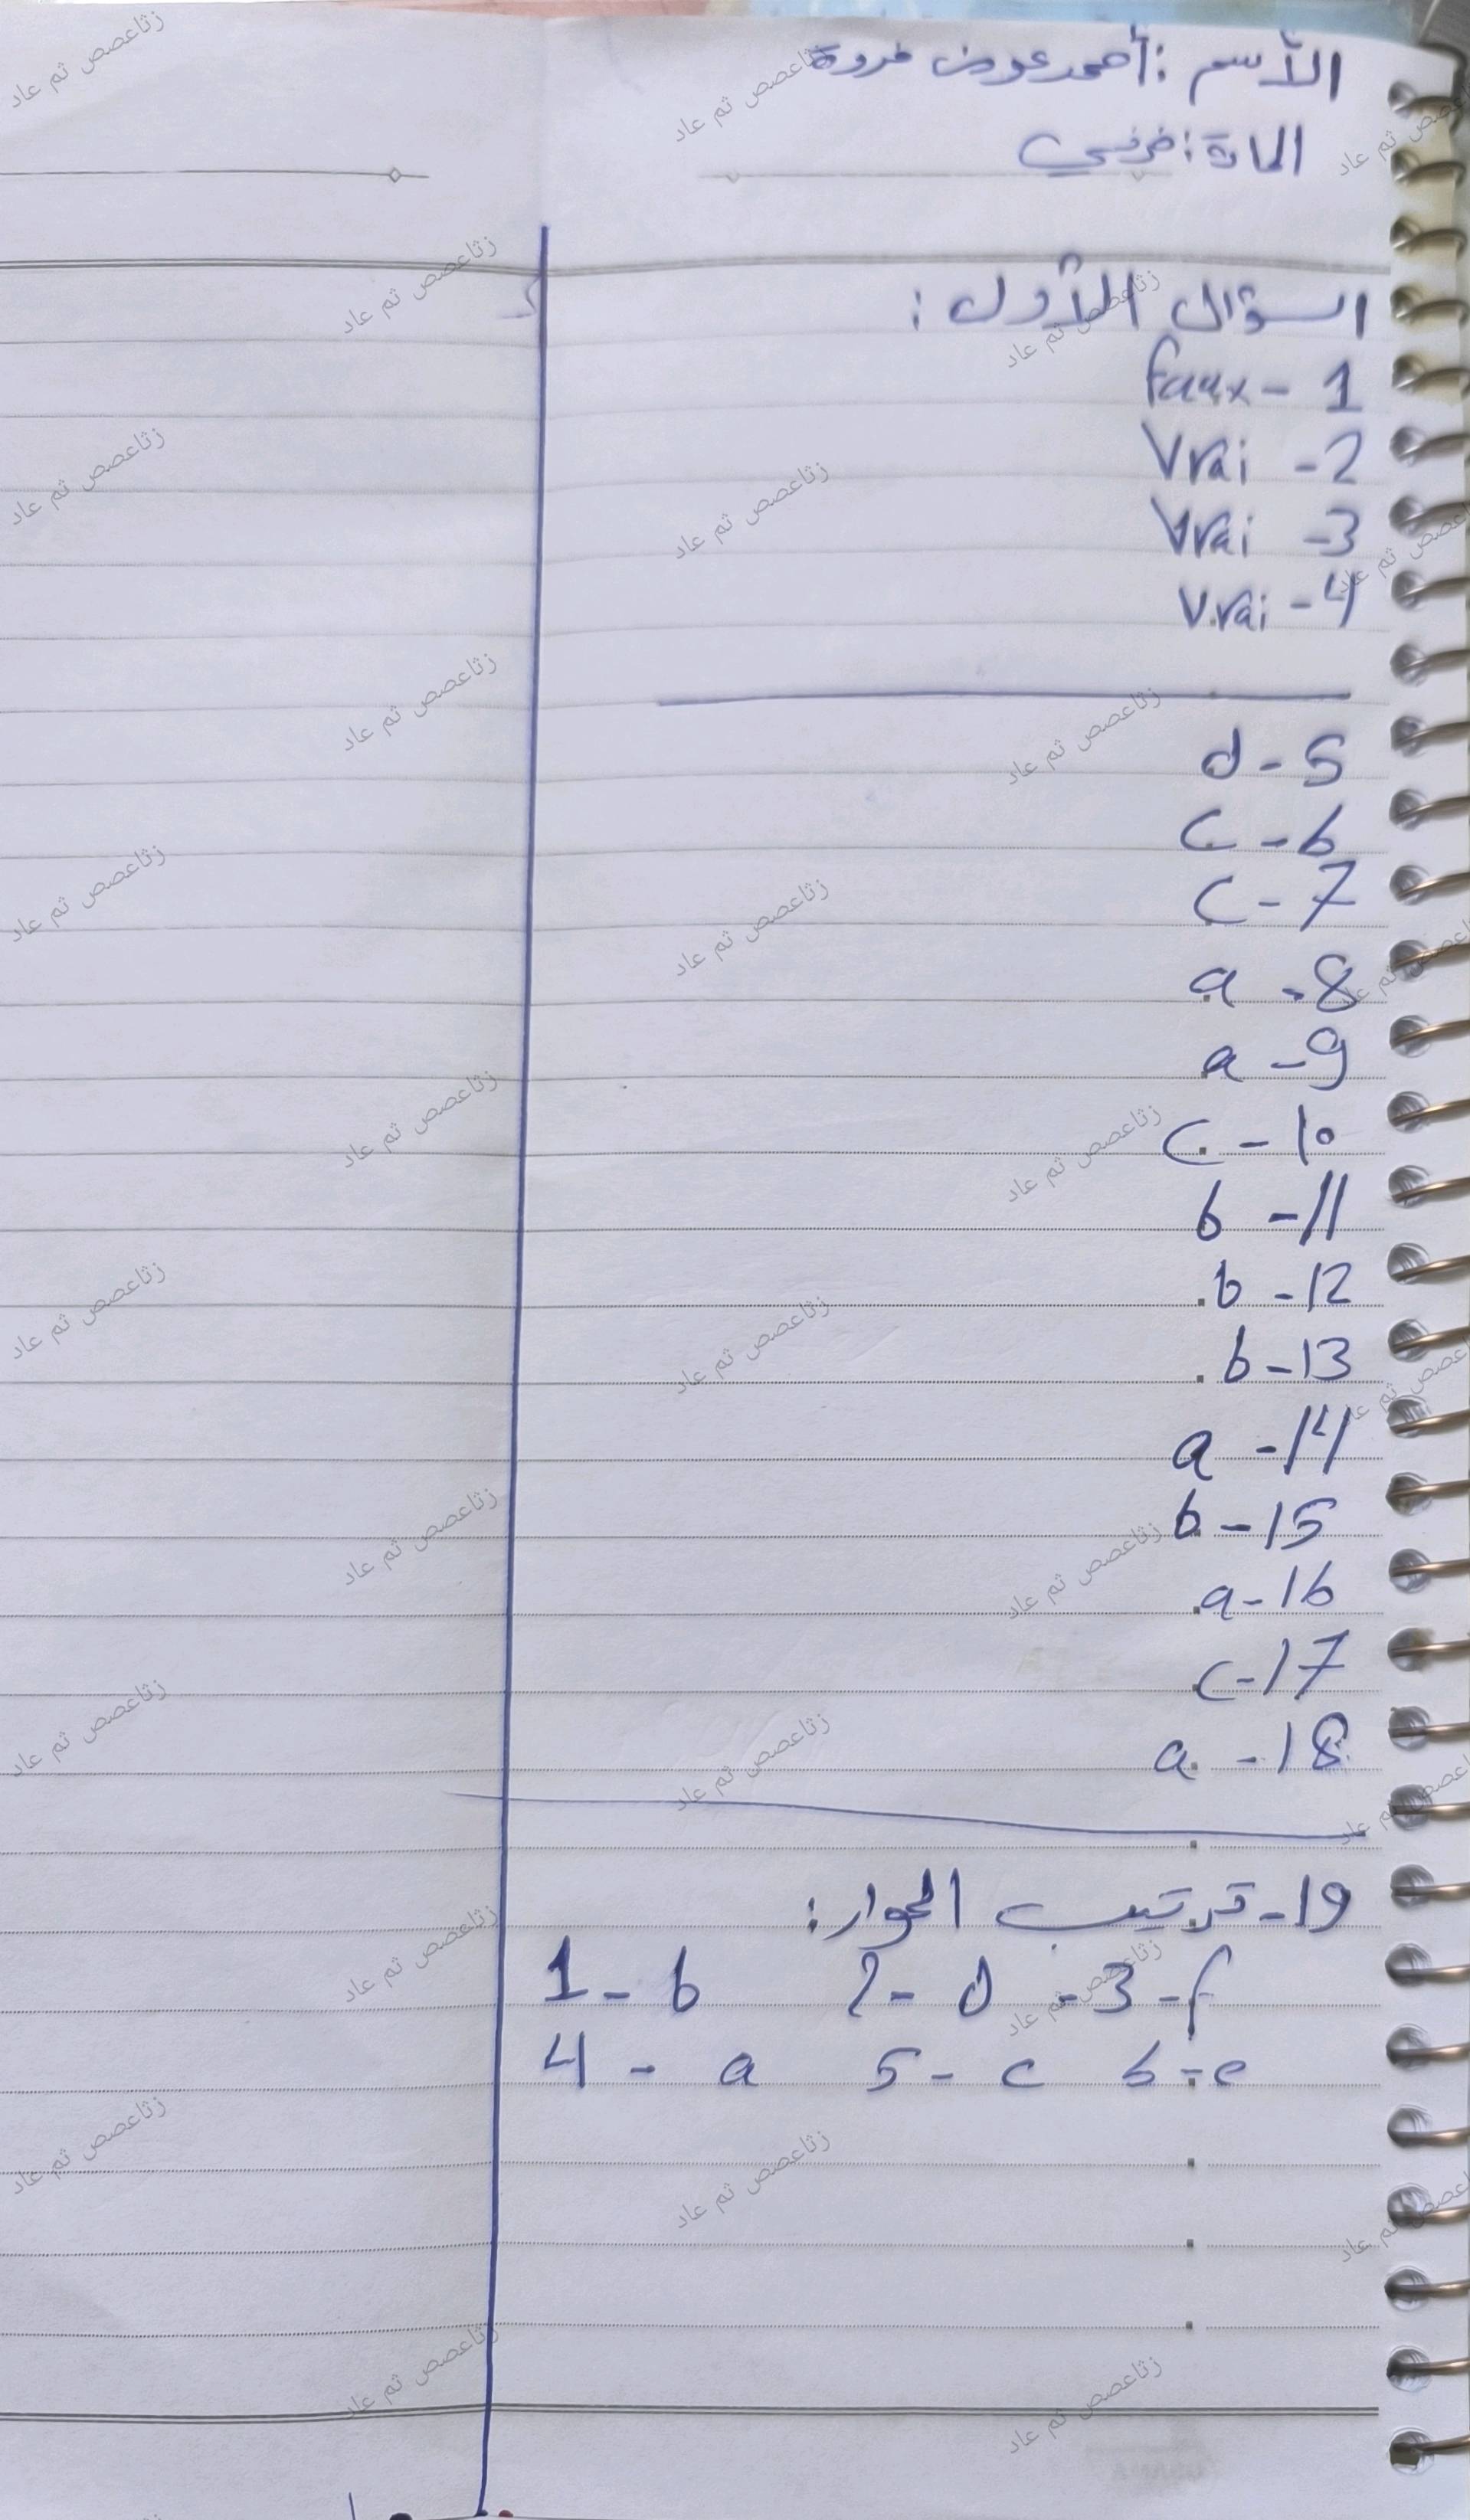 الأسم : أحمد عوض فروة
المادة : فرنسي
السؤال الأول :
faux - 1
Vrai - 2
Vrai - 3
Vrai - 4
d - 5
c - 6
c - 7
a - 8
a - 9
c - 10
b - 11
b - 12
b - 13
a - 14
b - 15
a - 16
c - 17
a - 18
19 - ترتيب الحوار :
1 - b 2 - d - 3 - f
4 - a 5 - c 6 - e